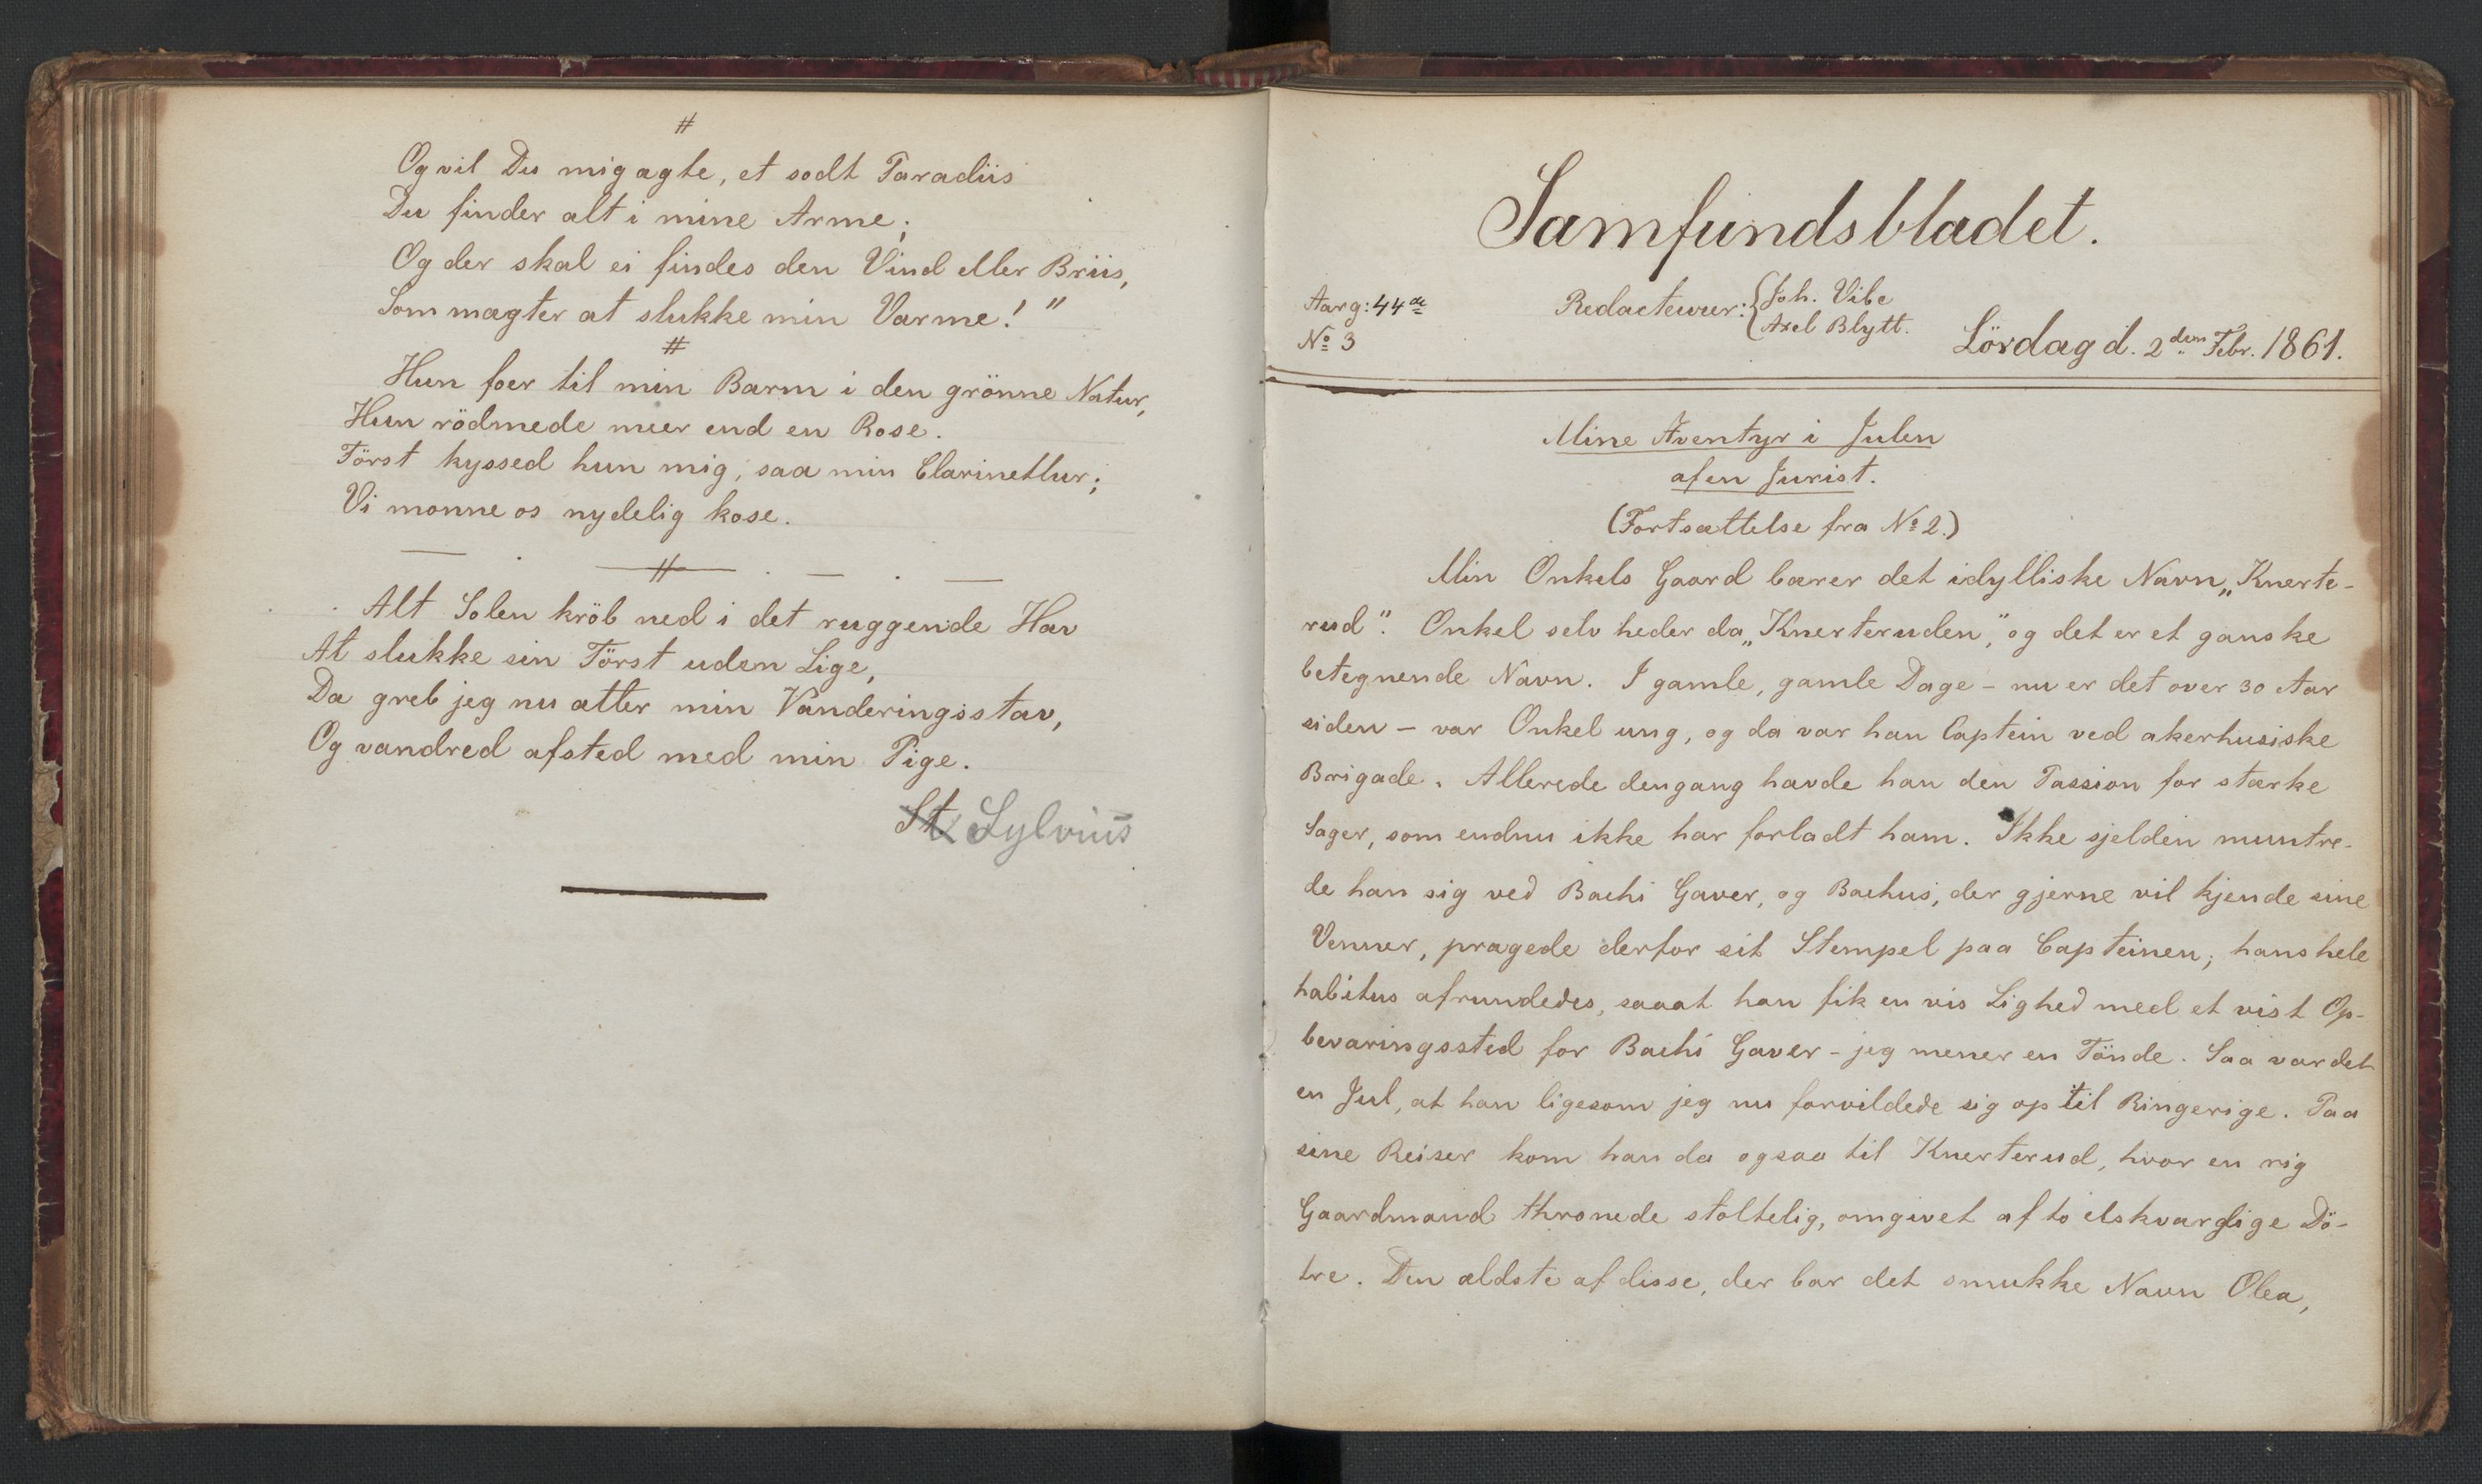 #
Og vil Du mig agte, et sødt Paradiis
Du finder alt i mine Arme;
Og der skal ei findes den Vind eller Briis,
Som mægter at slukke min Varme!"
#
Hun foer til min Barm i den grönne Natur,
Hun rödmede meer end en Rose.
Först kyssed hun mig, saa min Clarinetlur;
Vi monne os nydelig kose.
#
Alt Solen kröb ned i det ruggende Hav
At slukke sin Törst uden Lige,
Da greb jeg nu atter min Vanderingsstav,
Og vandred afsted med min Pige.
St Sylvius
Samfundsbladet.
Aarg: 44de
No 3
Redacteurer: { Joh. Vibe
Axel Blytt.
Lördag d. 2den Febr. 1861.
Mine Æventyr i Julen
af en Jurist.
(Fortsættelse fra No 2.)
Min Onkels Gaard bærer det idylliske Navn „Knerte-
rud". Onkel selv heder da „Knerteruden", og det er et ganske
betegnende Navn. I gamle, gamle Dage - nu er det over 30 Aar
siden - var Onkel ung, og da var han Captein ved akerhusiske
Brigade. Allerede dengang havde han den Passion for stærke
Sager, som endnu ikke har forladt ham. Ikke sjelden muntre-
de han sig ved Bachi Gaver, og Bachus, der gjerne vil kjende sine
Venner, prægede derfor sit Stempel paa Capteinen; hans hele
habitus afrundedes, saaat han fik en vis Lighed med et vist Op-
bevaringssted for Bachi Gaver - jeg mener en Tönde. Saa var det
en Jul, at han ligesom jeg nu forvildede sig op til Ringerige. Paa
sine Reiser kom han da ogsaa til Knerterud, hvor en rig
Gaardmand thronede stoltelig, omgivet af to elskværdige Dö-
tre. Den ældste af disse, der bar det smukke Navn Olea,